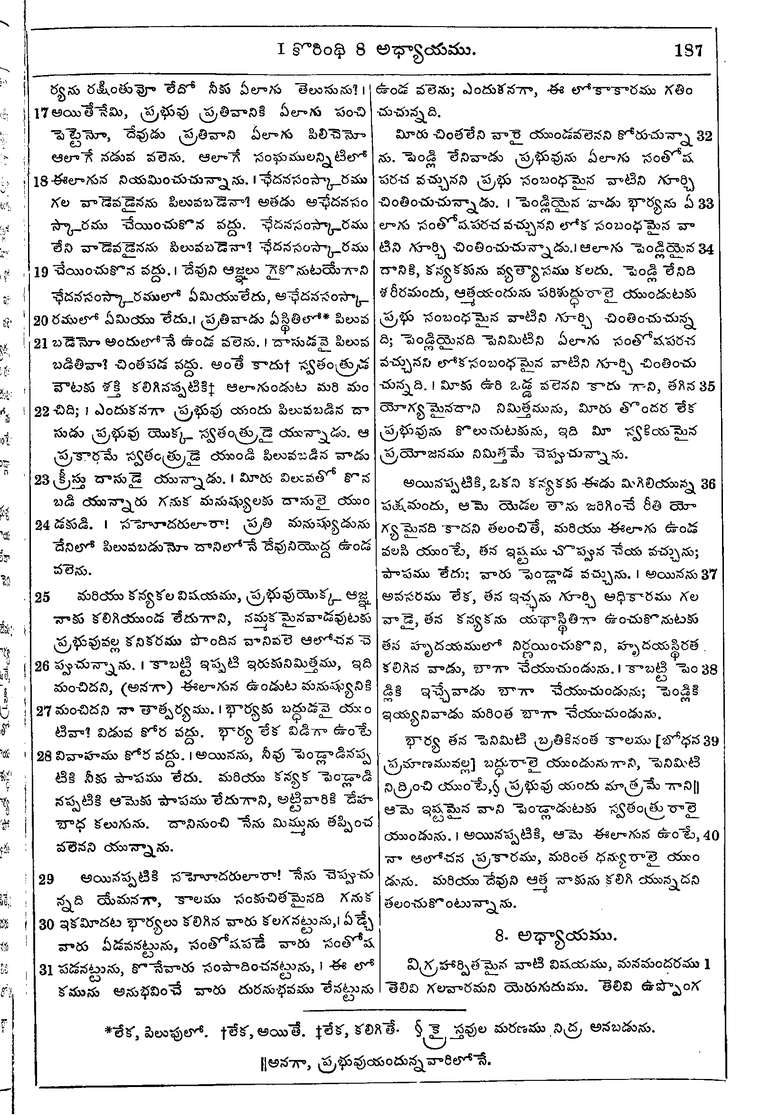 I కొరింథి 8 అధ్యాయము. 187
ర్యను రక్షింతువో లేదో నీకు ఏలాగు తెలుసును?।
17 అయితేనేమి, ప్రభువు ప్రతివానికి ఏలాగు పంచి
పెట్టెనో, దేవుడు ప్రతివాని ఏలాగు పిలిచెనో
ఆలాగే నడువ వలెను. ఆలాగే సంఘములన్నిటిలో
18 ఈలాగున నియమించుచున్నాను.। ఛేదనసంస్కారము
గల వాడెవడైనను పిలువబడెనా? అతడు అఛేదనసం
స్కారము చేయించుకొన వద్దు. ఛేదనసంస్కారము
లేని వాడెవడైనను పిలువబడెనా? ఛేదనసంస్కారము
19 చేయించుకొన వద్దు.। దేవుని ఆజ్ఞలు గైకొనుటయేగాని
ఛేదనసంస్కారములో ఏమియులేదు, అఛేదనసంస్కా
20 రములో ఏమియు లేదు.। ప్రతివాడు ఏస్థితిలో* పిలువ
21 బడెనో అందులోనే ఉండ వలెను.। దాసుడవై పిలువ
బడితివా? చింతపడ వద్దు. అంతే కాదు† స్వతంత్రుడ
వౌటకు శక్తి కలిగినప్పటికి‡ ఆలాగుండుట మరి మం
22 చిది;। ఎందుకనగా ప్రభువు యందు పిలువబడిన దా
సుడు ప్రభువు యొక్క స్వతంత్రుడై యున్నాడు. ఆ
ప్రకారమే స్వతంత్రుడై యుండి పిలువబడిన వాడు
23 క్రీస్తు దాసుడై యున్నాడు.। మీరు విలువతో కొన
బడి యున్నారు గనుక మనుష్యులకు దాసులై యుం
24 డకుడి.। సహోదరులారా! ప్రతి మనుష్యుడును
దేనిలో పిలువబడునో దానిలోనే దేవునియొద్ద ఉండ
వలెను.
25 మరియు కన్యకల విషయము, ప్రభువుయొక్క ఆజ్ఞ
నాకు కలిగియుండ లేదుగాని, నమ్మకమైనవాడవుటకు
ప్రభువువల్ల కనికరము పొందిన వానివలె ఆలోచన చె
26 ప్పుచున్నాను.। కాబట్టి ఇప్పటి ఇరుకునిమిత్తము, ఇది
మంచిదని, (అనగా) ఈలాగున ఉండుట మనుష్యునికి
27 మంచిదని నా తాత్పర్యము.। భార్యకు బద్ధుడవై యుం
టివా? విడువ కోర వద్దు. భార్య లేక విడిగా ఉంటే
28 వివాహము కోర వద్దు.। అయినను, నీవు పెండ్లాడినప్ప
టికి నీకు పాపము లేదు. మరియు కన్యక పెండ్లాడి
నప్పటికి ఆమెకు పాపము లేదుగాని, అట్టివారికి దేహ
బాధ కలుగును. దానినుంచి నేను మిమ్మును తప్పించ
వలెనని యున్నాను.
29 అయినప్పటికి సహోదరులారా! నేను చెప్పుచు
న్నది యేమనగా, కాలము సంకుచితమైనది గనుక
30 ఇకమీదట భార్యలు కలిగిన వారు కలగనట్టును,। ఏడ్చే
వారు ఏడవనట్టును, సంతోషపడే వారు సంతోష
31 పడనట్టును, కొనేవారు సంపాదించనట్టును,। ఈ లో
కమును అనుభవించే వారు దురనుభవము లేనట్టును
ఉండ వలెను; ఎందుకనగా, ఈ లోకాకారము గతిం
చుచున్నది.
మీరు చింతలేని వారై యుండవలెనని కోరుచున్నా 32
ను. పెండ్లి లేనివాడు ప్రభువును ఏలాగు సంతోష
పరచ వచ్చునని ప్రభు సంబంధమైన వాటిని గూర్చి
చింతించుచున్నాడు.। పెండ్లియైన వాడు భార్యను ఏ 33
లాగు సంతోషపరచ వచ్చునని లోక సంబంధమైన వా
టిని గూర్చి చింతించుచున్నాడు.। ఆలాగు పెండ్లియైన 34
దానికి, కన్యకకును వ్యత్యాసము కలదు. పెండ్లి లేనిది
శరీరమందు, ఆత్మయందును పరిశుద్ధురాలై యుండుటకు
ప్రభు సంబంధమైన వాటిని గూర్చి చింతించుచున్న
ది; పెండ్లియైనది పెనిమిటిని ఏలాగు సంతోషపరచ
వచ్చునని లోకసంబంధమైన వాటిని గూర్చి చింతించు
చున్నది.। మీకు ఉరి ఒడ్డ వలెనని కాదు గాని, తగిన 35
యోగ్యమైనదాని నిమిత్తమును, మీరు తొందర లేక
ప్రభువును కొలుచుటకును, ఇది మీ స్వకీయమైన
ప్రయోజనము నిమిత్తమే చెప్పుచున్నాను.
అయినప్పటికి, ఒకని కన్యకకు ఈడు మిగిలియున్న 36
పక్షమందు, ఆమె యెడల తాను జరిగించే రీతి యో
గ్యమైనది కాదని తలంచితే, మరియు ఈలాగు ఉండ
వలసి యుంటే, తన ఇష్టము చొప్పున చేయ వచ్చును;
పాపము లేదు; వారు పెండ్లాడ వచ్చును.। అయినను 37
అవసరము లేక, తన ఇచ్ఛను గూర్చి అధికారము గల
వాడై, తన కన్యకను యథాస్థితిగా ఉంచుకొనుటకు
తన హృదయములో నిర్ణయించుకొని, హృదయస్థిరత
కలిగిన వాడు, బాగా చేయుచుండును.। కాబట్టి పెం 38
డ్లికి ఇచ్చేవాడు బాగా చేయుచుండును; పెండ్లికి
ఇయ్యనివాడు మరింత బాగా చేయుచుండును.
భార్య తన పెనిమిటి బ్రతికినంత కాలము [బోధన 39
ప్రమాణమువల్ల] బద్ధురాలై యుండునుగాని, పెనిమిటి
నిద్రించి యుంటే,§ ప్రభువు యందు మాత్రమే గాని‖
ఆమె ఇష్టమైన వాని పెండ్లాడుటకు స్వతంత్రురాలై
యుండును.। అయినప్పటికి, ఆమె ఈలాగున ఉంటే, 40
నా ఆలోచన ప్రకారము, మరింత ధన్యురాలై యుం
డును. మరియు దేవుని ఆత్మ నాకును కలిగి యున్నదని
తలంచుకొంటున్నాను.
8. అధ్యాయము.
విగ్రహార్పితమైన వాటి విషయము, మనమందరము 1
తెలివి గలవారమని యెరుగుదుము. తెలివి ఉప్పొంగ
*లేక, పిలుపులో. †లేక, అయితే. ‡లేక, కలిగితే. § క్రైస్తవుల మరణము నిద్ర అనబడును.
‖అనగా, ప్రభువుయందున్నవారిలోనే.